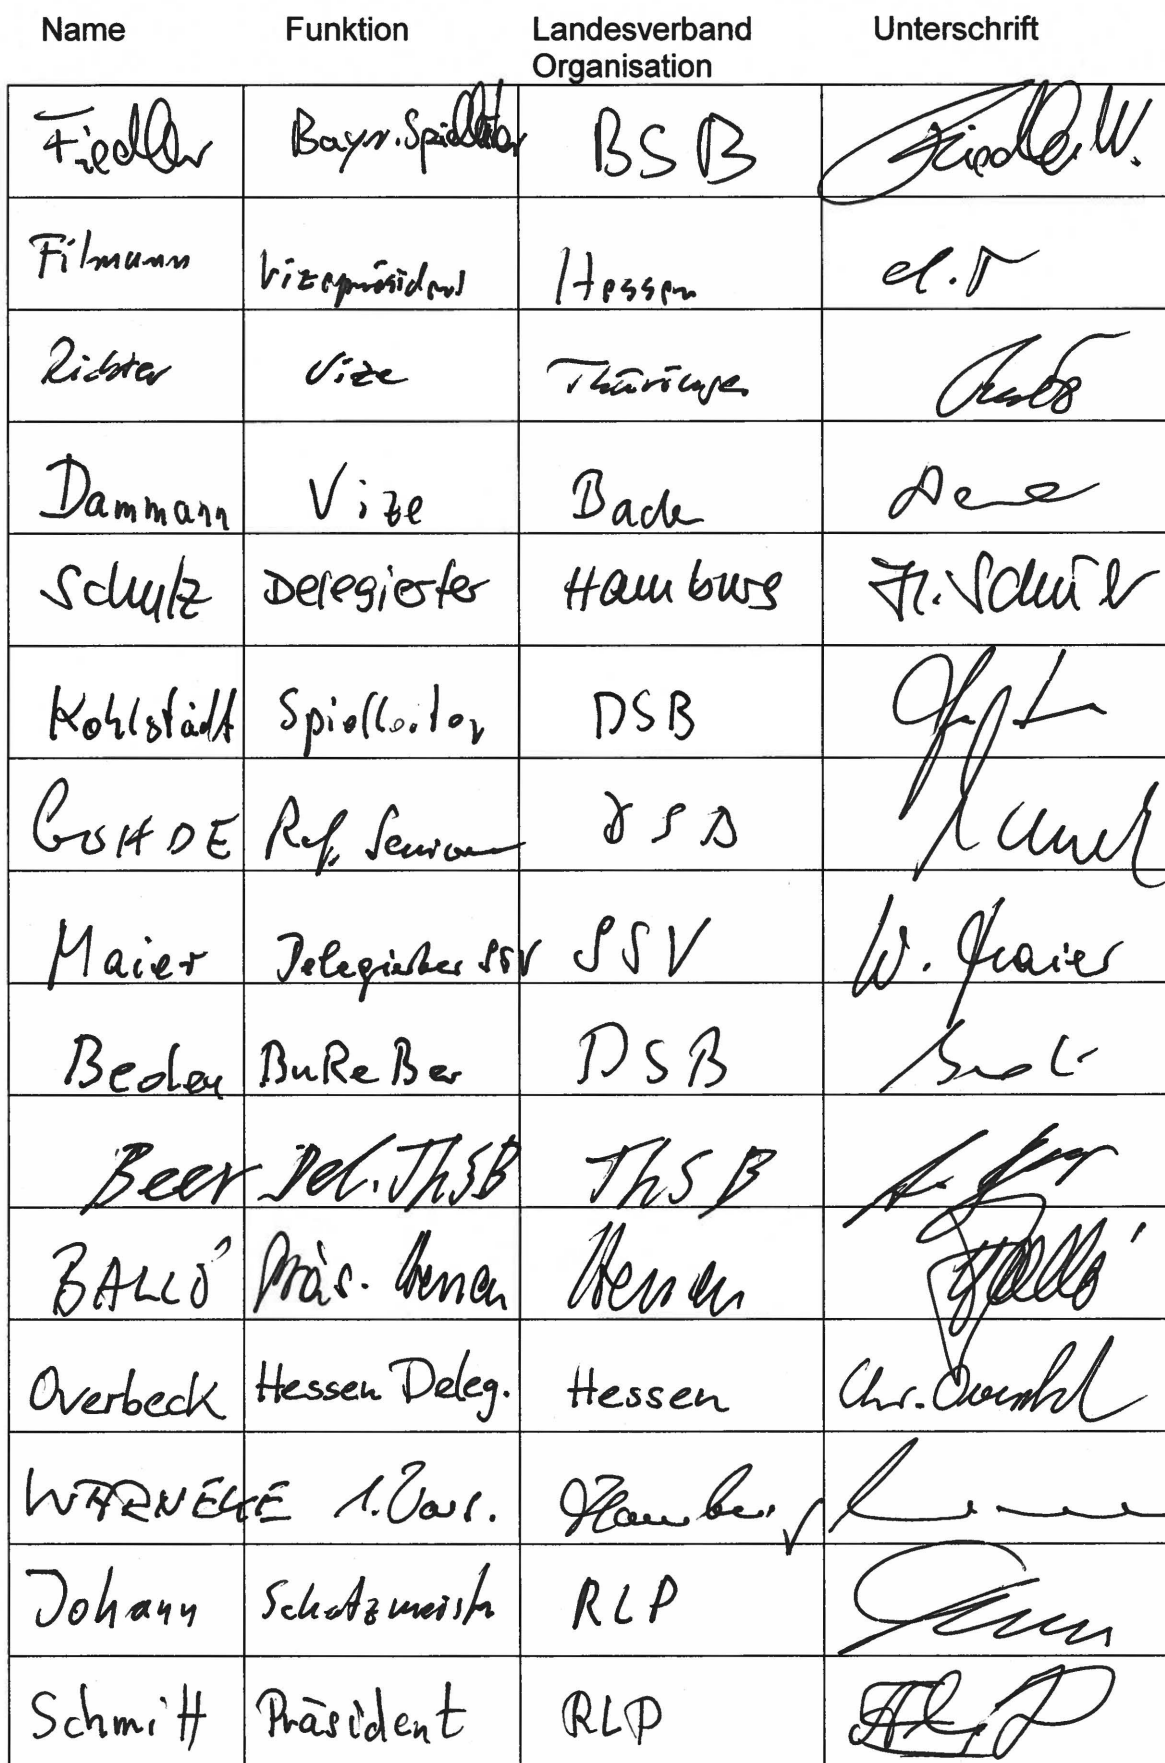 Name Funktion Landesverband Unterschrift
Organisation
Fiedler Bayr. Spielleiter BSB Fiedler W.
Filmann Vizepräsident Hessen
Richter Vize Thüringen
Dammann Vize Baden
Schulz Delegierter Hamburg
Kohlstädt Spielleiter DSB
GOHDE Ref. Senioren DSB
Maier Delegierter SSV SSV W. Maier
Beden BuReBer DSB
Beer Del. ThSB ThSB
BALLÓ Präs. Hessen Hessen Balló
Overbeck Hessen Deleg. Hessen Chr. Overbeck
WARNEKE 1. Vors. Hamburg
Johann Schatzmeister RLP
Schmitt Präsident RLP